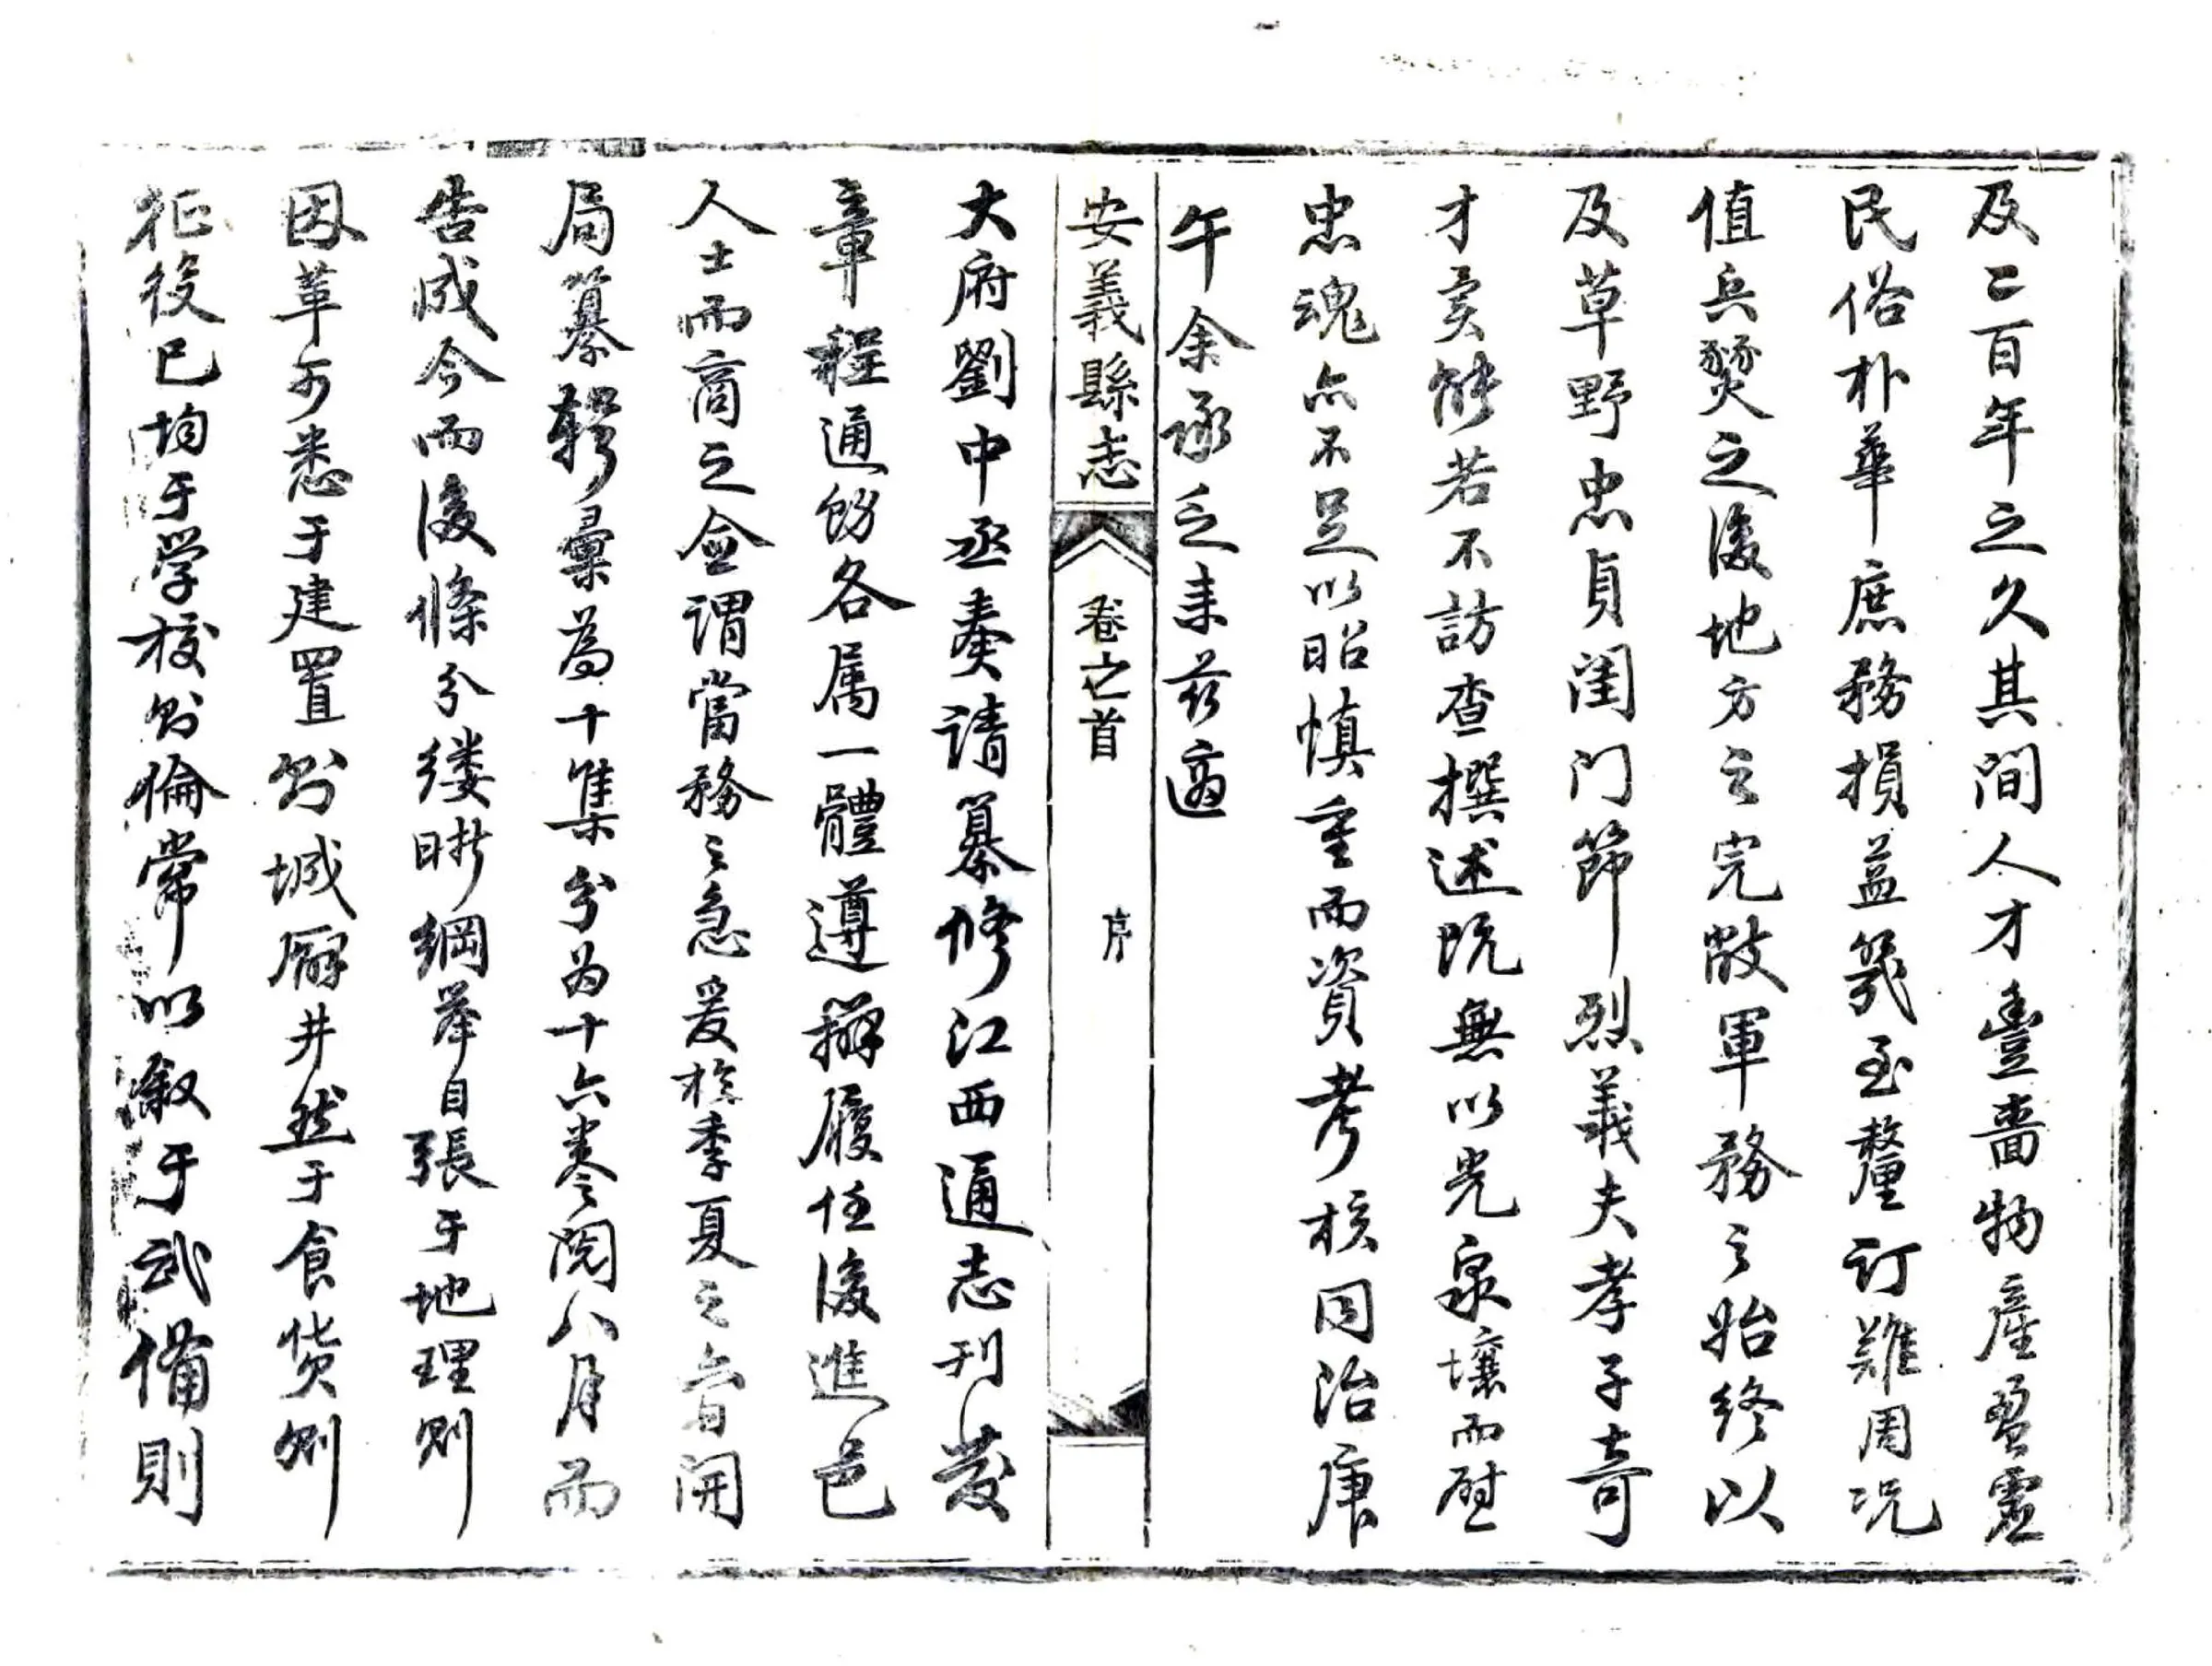 及二百年之久其間人才豐嗇物産盈虛
民俗朴華庶務損益幾至釐訂難周况
值兵燹之後地方之完敝軍務之始終以
及草野忠貞閨门節烈義夫孝子奇
才異能若不訪查撰述既無以光泉壤而慰
忠魂亦不足以昭慎重而資考核同治庚
午余承乏来兹適
安義縣志 卷之首 序
大府劉中丞奏請纂修江西通志刊發
章程通飭各属一體遵辦履任後進邑
人士而商之僉謂當務之急爰於季夏之月開
局纂輯彙為十集分为十六卷閱八月而
告成今而後條分缕晰綱举目張于地理則
因革可悉于建置則城廨井然于食货則
征役已均于学校則倫常以叙于武備則